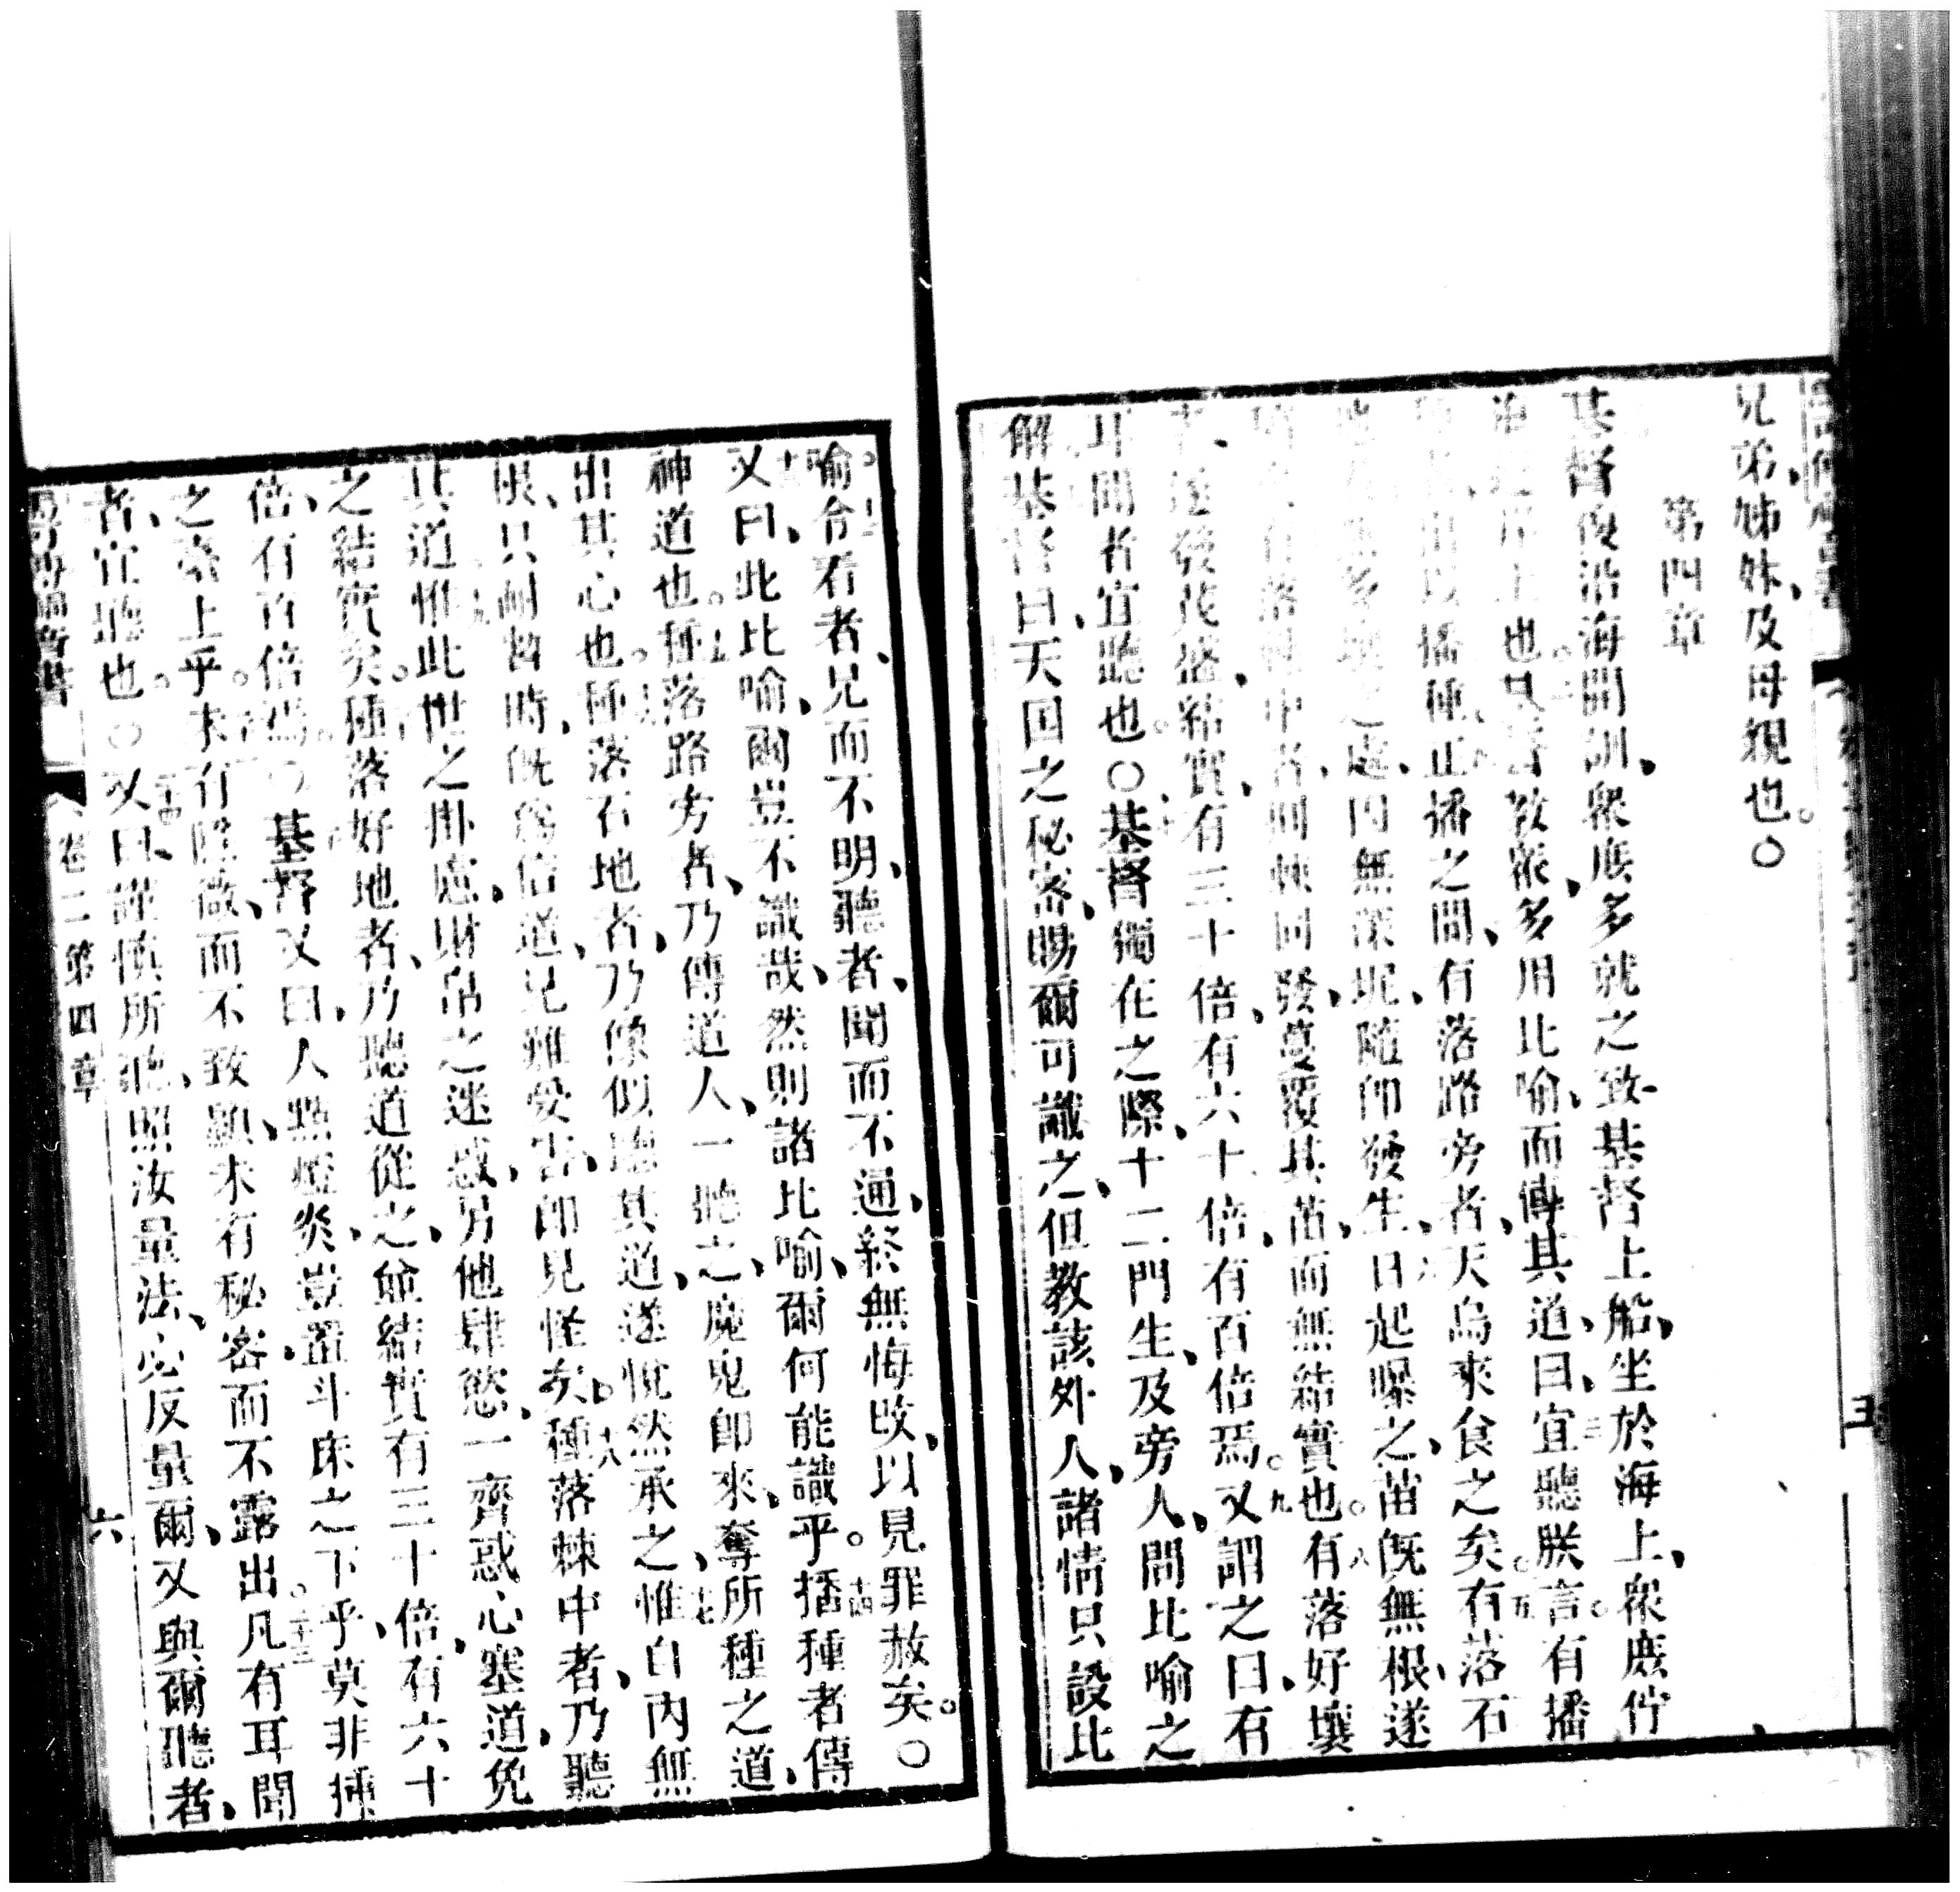 兄弟、姊妹、及母親也。〇
第四章
基督復沿海開訓、衆庶多就之、致基督上船、坐於海上、衆庶佇
海 上也。其 敎衆、多用比喻、而傳其道、曰、宜聽朕言。有播
出以播種、正播之間、有落路旁者、天鳥來食之矣。有落石
多 之處、因無深坭、隨即發生、日起曝之、苗旣無根、遂
有落 中者、 棘同發、蔓覆其苗、而無結實也。有落好壤
者、遂發茂盛、結實、有三十倍、有六十倍、有百倍焉。又謂之曰、有
耳聞者宜聽也。〇基督獨在之際、十二門生、及旁人、問比喻之
解、基督曰、天國之秘密、賜爾可識之、但敎該外人、諸情只設比
五
喻、令看者、見而不明、聽者、聞而不通、終無悔改、以見罪赦矣。〇
又曰、此比喻、爾豈不識哉、然則諸比喻、爾何能識乎。播種者、傳
神道也。種落路旁者、乃傳道人、一聽之、魔鬼即來、奪所種之道、
出其心也。種落石地者、乃像似聽其道、遂悅然承之、惟自內無
根、只耐暫時、旣為信道、見難受害、即見怪矣。種落棘中者、乃聽
其道、惟此世之掛慮、財帛之迷惑、另他肆慾、一齊惑心塞道、免
之結實矣。種落好地者、乃聽道從之、並結實、有三十倍、有六十
倍、有百倍焉。〇基督又曰、人點燈炎、豈置斗床之下乎、莫非揷
之臺上乎。未有隱微、而不致顯、未有秘密、而不露出。凡有耳聞
者、宜聽也。〇又曰、謹慎所聽、照汝量法、必反量爾、又與爾聽者、
卷二第四章 六